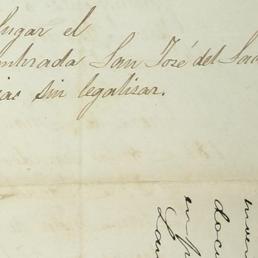 lugar el
mbrada San José del Sac
ias sin legalizar.
docu